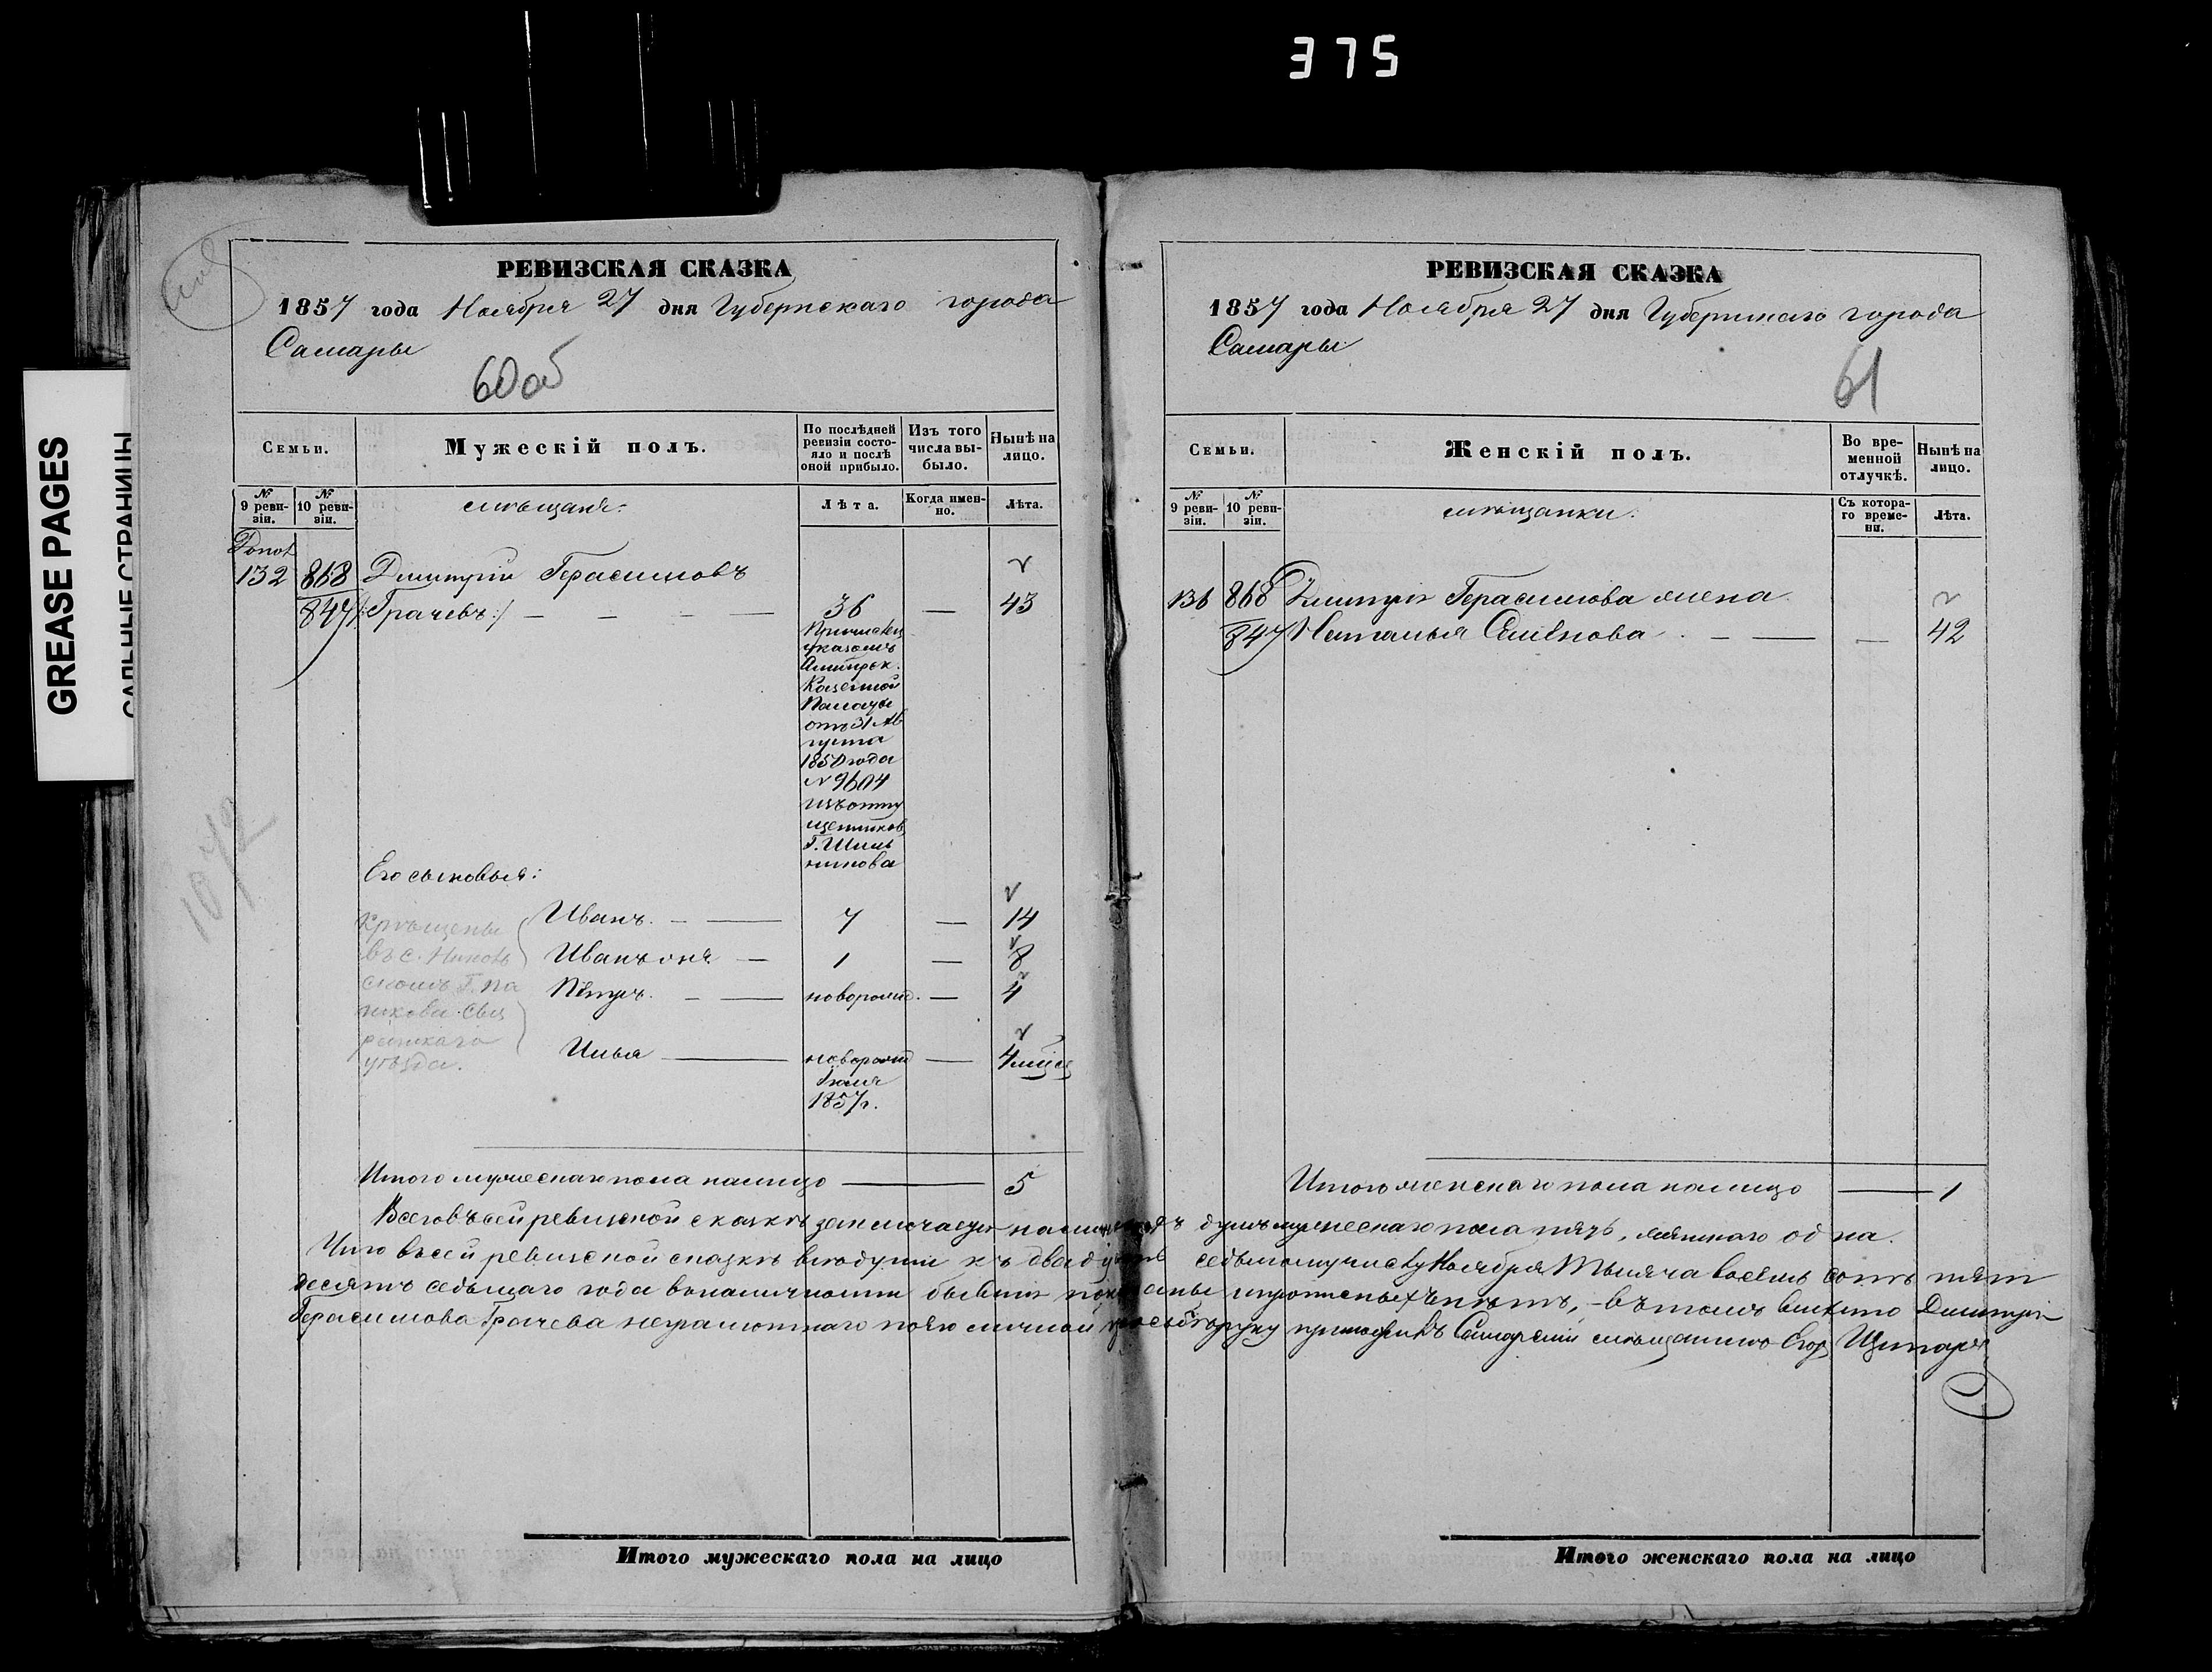 375
GREASE PAGES
САЛЬНЫЕ СТРАНИЦЫ
РЕВИЗСКАЯ СКАЗКА
1857 года Ноября 27 дня Губернскаго города
Самары
60 об
Семьи.
Мужескій полъ.
По послѣдней ревизіи состояло и послѣ оной прибыло.
Изъ того числа выбыло.
Нынѣ на лицо.
№ 9 ревизіи.
№ 10 ревизіи.
мѣщане.
Лѣта.
Когда именно.
Лѣта.
132 868 Дмитрій Герасимовъ
847 /:Грачевъ:/ — 36 — 43
Причислен
указомъ
Симбирск.
Казенной
Палаты
отъ 31 Ав
густа
1850 года
№ 9604
изъ отпу
щенников
Г.
Его сыновья:
Иванъ. — 7 — 14
Иванъ он же — 1 — 8
Петръ. — новорожд. — 4
Илья — новорожд — 4 мѣся
Іюля
1857 г.
Крѣщены
въ с.
скомъ Г.
уѣзда.
1072
Итого мужескаго пола налицо — 5
РЕВИЗСКАЯ СКАЗКА
1857 года Ноября 27 дня Губернскаго города
Самары
61
Семьи.
Женскій полъ.
Во временной отлучкѣ.
Нынѣ на лицо.
№ 9 ревизіи.
№ 10 ревизіи.
мѣщанки.
Съ котораго времени.
Лѣта.
136 868 Дмитрія Герасимова жена
847 Наталья Семенова. — 42
Итого женскаго пола налицо — 1
Всего въ сей ревизской сказкѣ заключается налицо душъ мужескаго пола пять, женскаго одна.
Что въ сей ревизской сказкѣ всѣ души къ двадцать седьмому числу Ноября Тысяча восемь сотъ пять
десятъ седьмаго года въ наличности бывшія показаны и пропиcныхъ нѣтъ, — въ томъ вмѣсто Дмитрія
Герасимова Грачева неграмотнаго по его личной просьбѣ руку приложилъ Самарскій мѣщанинъ Егор
Итого мужескаго пола на лицо
Итого женскаго пола на лицо